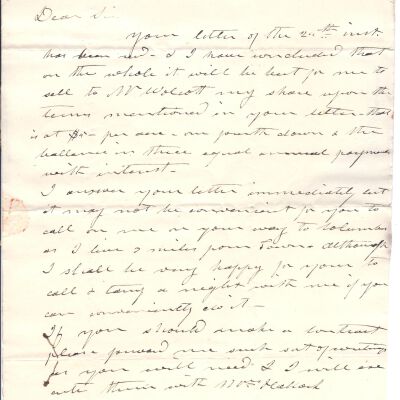 Dear Sir.
Your letter of the 24th inst
has been recd - & I have concluded that
on the whole it will be best for me to
sell to Mr Wolcott my share upon the
terms mentioned in your letter - that
is at $5 - per acre - one fourth down & the
ballance in three equal annual payments
with interest -
I answer your letter immediately but
it may not be convenient for you to
call on me on your way to Columbus
as I live 2 miles from Town & although
I shall be very happy for you to
call & tarry a night with me if you
can conveniently do it -
If you should make a contract
please forward me such sort of writing
as you will need & I will exe
cute them with Mrs